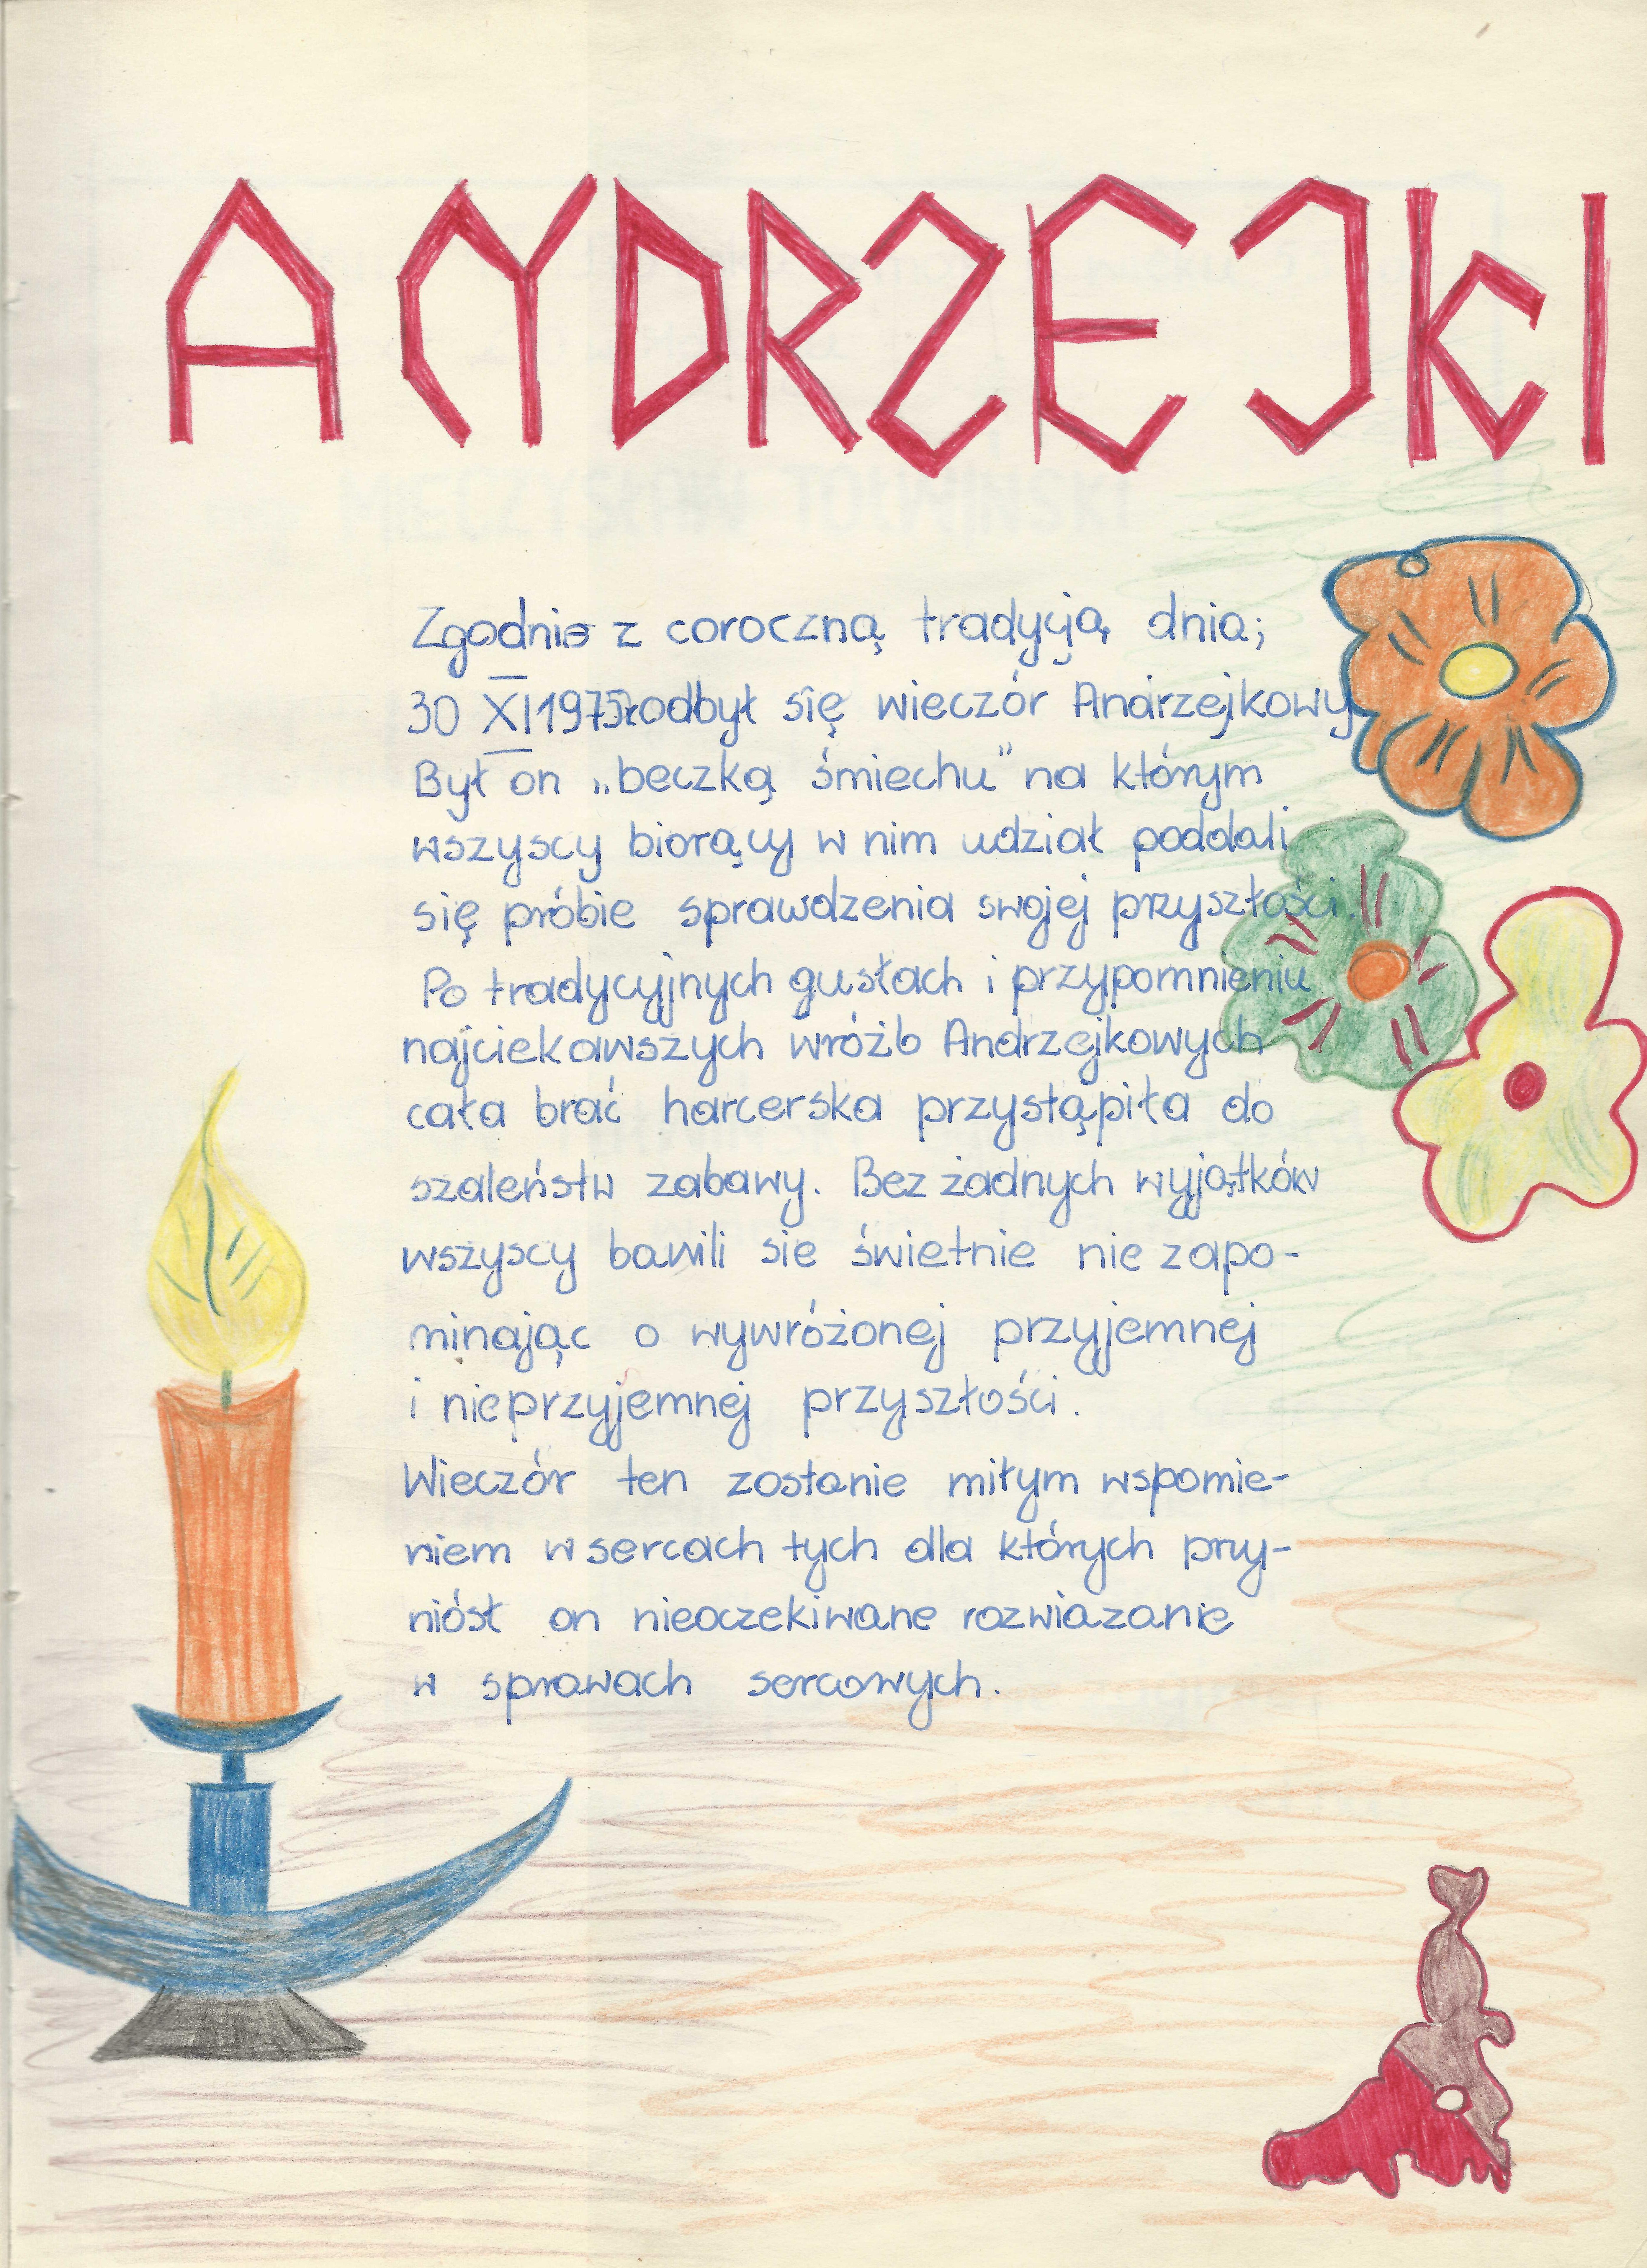 ANDRZEJKI
Zgodnie z coroczną tradycją dnia;
30 XI 1975r odbył się wieczór Andrzejkowy
Był on „beczką śmiechu" na którym
wszyscy biorący w nim udział poddali
się próbie sprawdzenia swojej przyszłości.
Po tradycyjnych gusłach i przypomnieniu
najciekawszych wróżb Andrzejkowych
cała brać harcerska przystąpiła do
szaleństw zabawy. Bez żadnych wyjątków
wszyscy bawili sie świetnie nie zapo-
minając o wywróżonej przyjemnej
i nieprzyjemnej przyszłości.
Wieczór ten zostanie miłym wspomie-
niem w sercach tych dla których przy-
niósł on nieoczekiwane rozwiazanie
w sprawach sercowych.